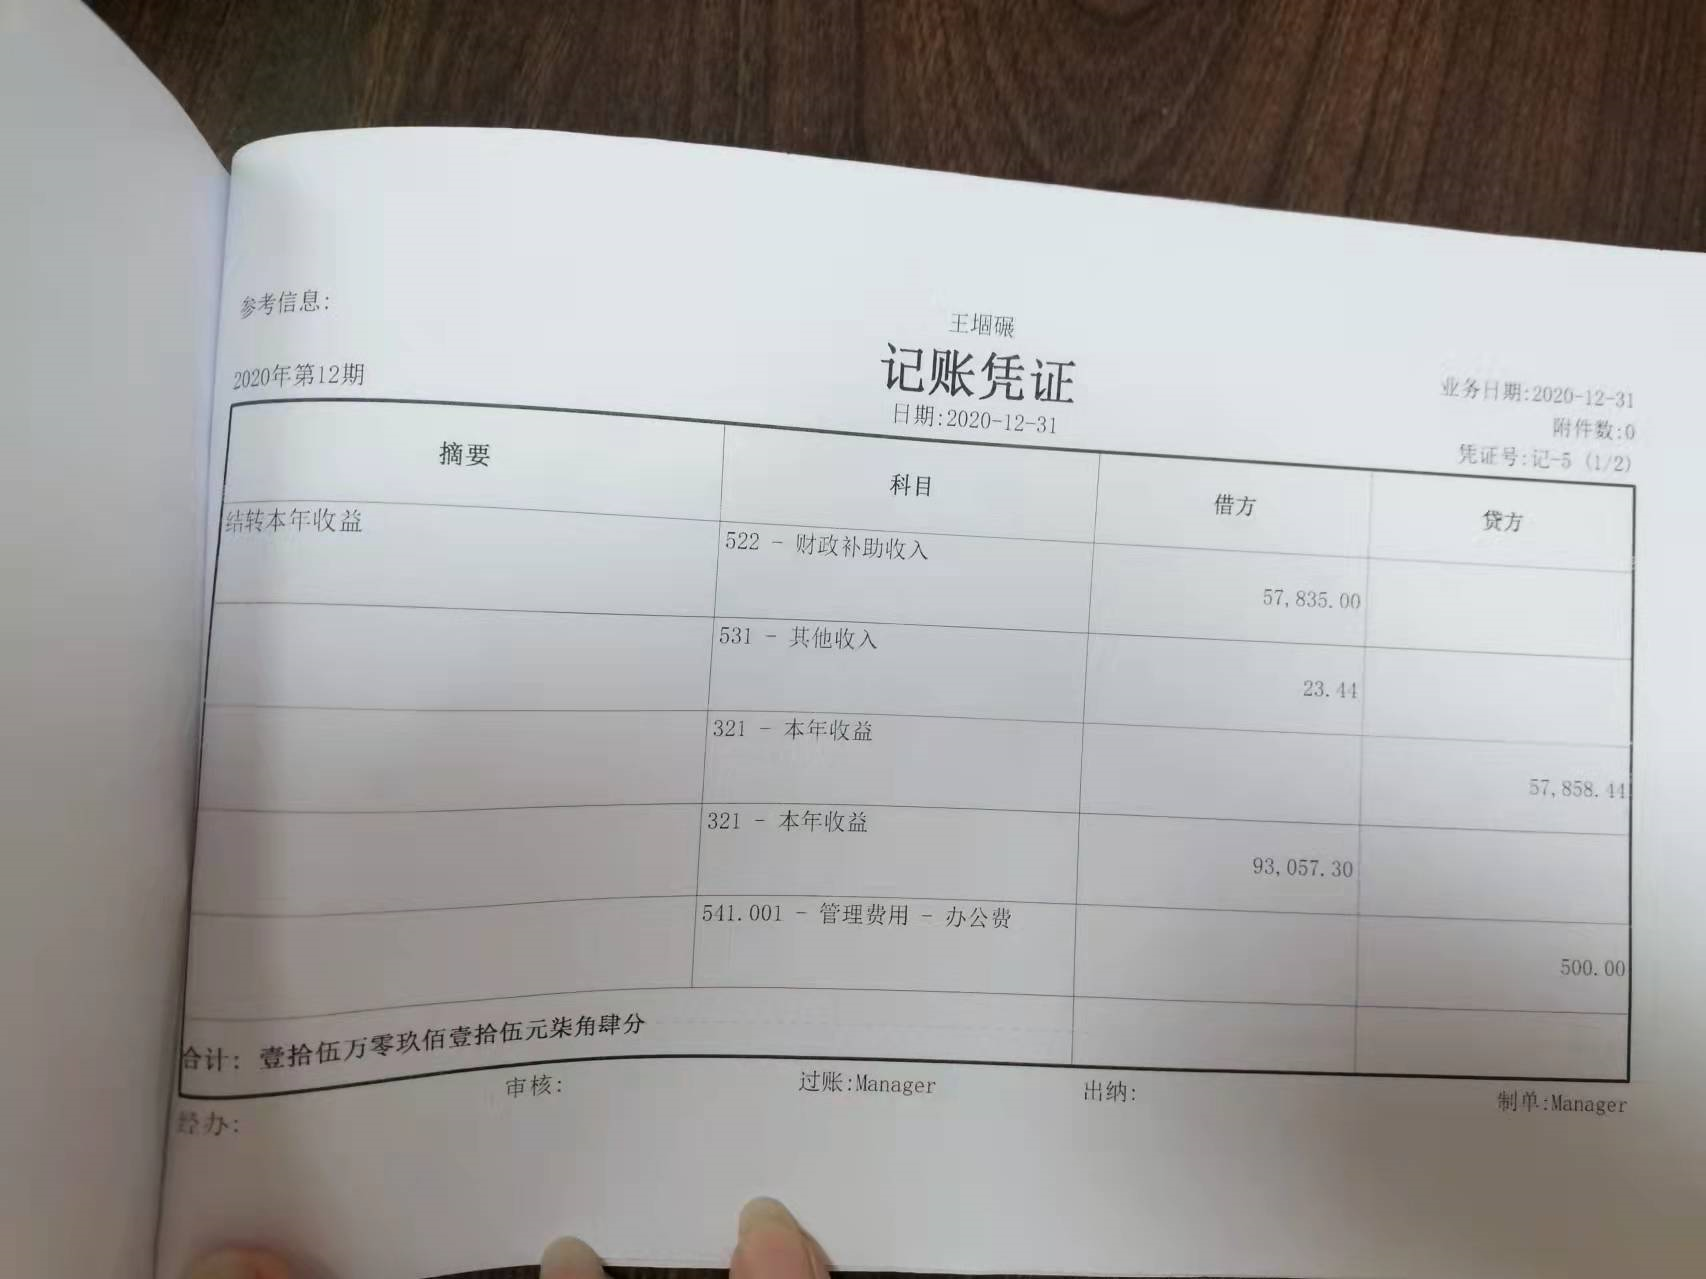 参考信息:
王堌碾
记账凭证
2020年第12期
日期:2020-12-31
业务日期:2020-12-31
附件数:0
凭证号:记-5 (1/2)
摘要 科目 借方 贷方
结转本年收益 522 - 财政补助收入 57,835.00
531 - 其他收入 23.44
321 - 本年收益 57,858.44
321 - 本年收益 93,057.30
541.001 - 管理费用 - 办公费 500.00
合计: 壹拾伍万零玖佰壹拾伍元柒角肆分
经办: 审核: 过账:Manager 出纳: 制单:Manager